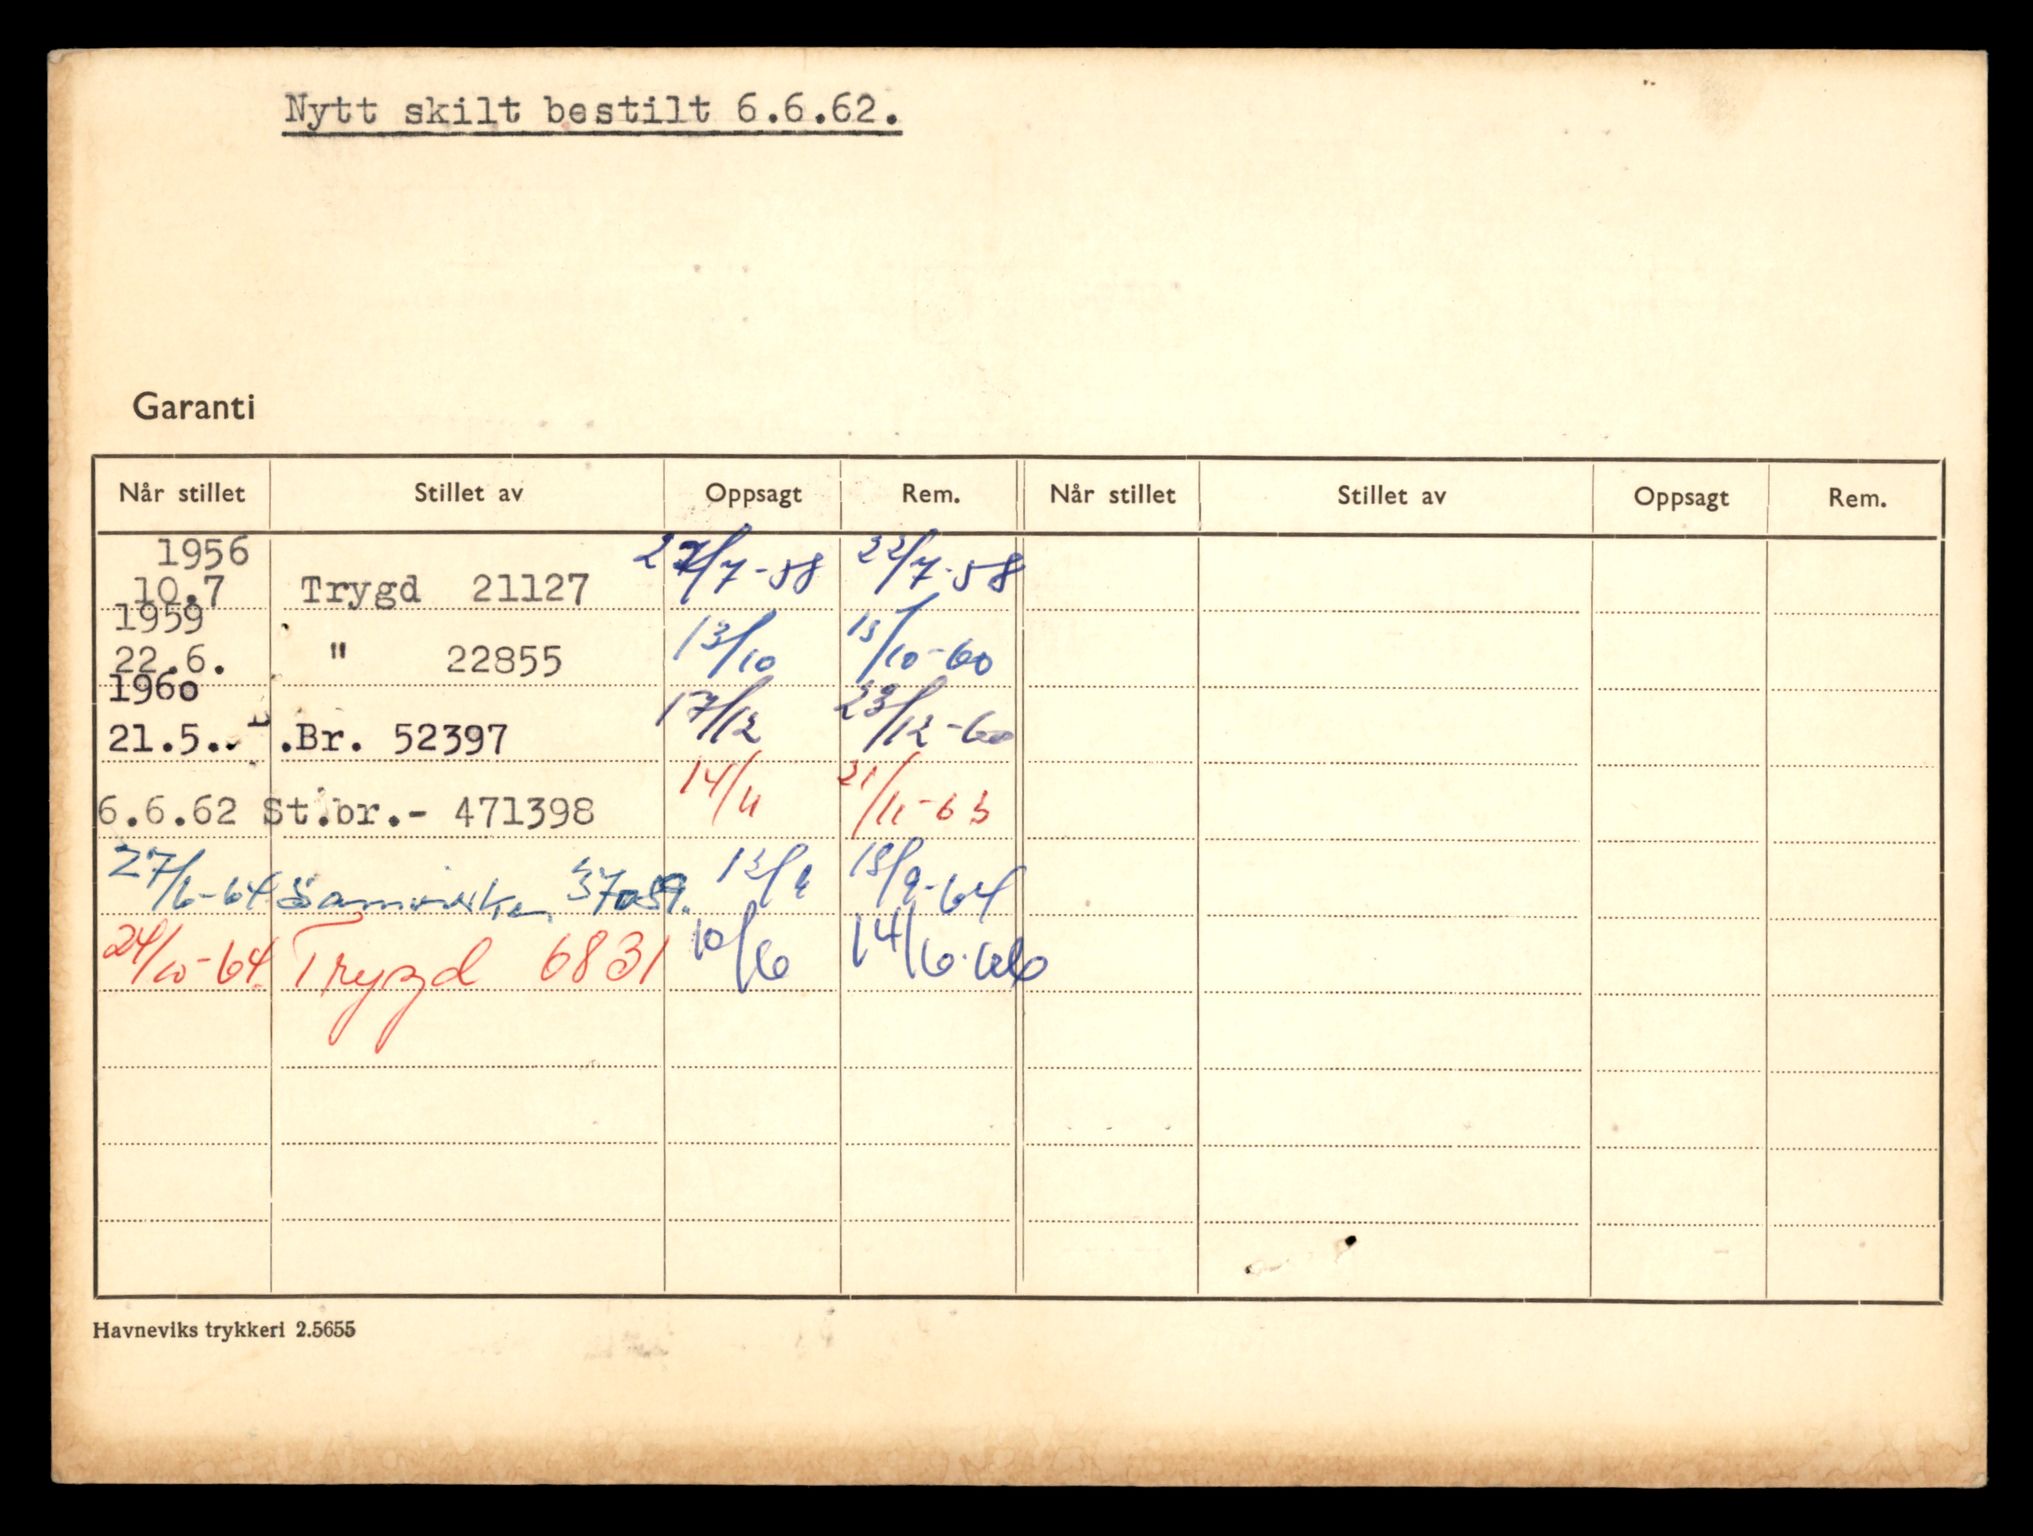 Nytt skilt bestilt 6.6.62.
Garanti
Når stillet Stillet av Oppsagt Rem. Når stillet Stillet av Oppsagt Rem.
1956
10.7 Trygd 21127 /7-58 22/7-58
1959
22.6. " 22855 13/10 15/10-60
1960
21.5. .Br. 52397 17/12 23/12-60
6.6.62 St.br.- 471398 14/11 21/11-63
27/6-64 Samvirke 37059. 13/9 18/9-64
24/10-64. Trygd 6831 10/6 14/6-66
Havneviks trykkeri 2.5655